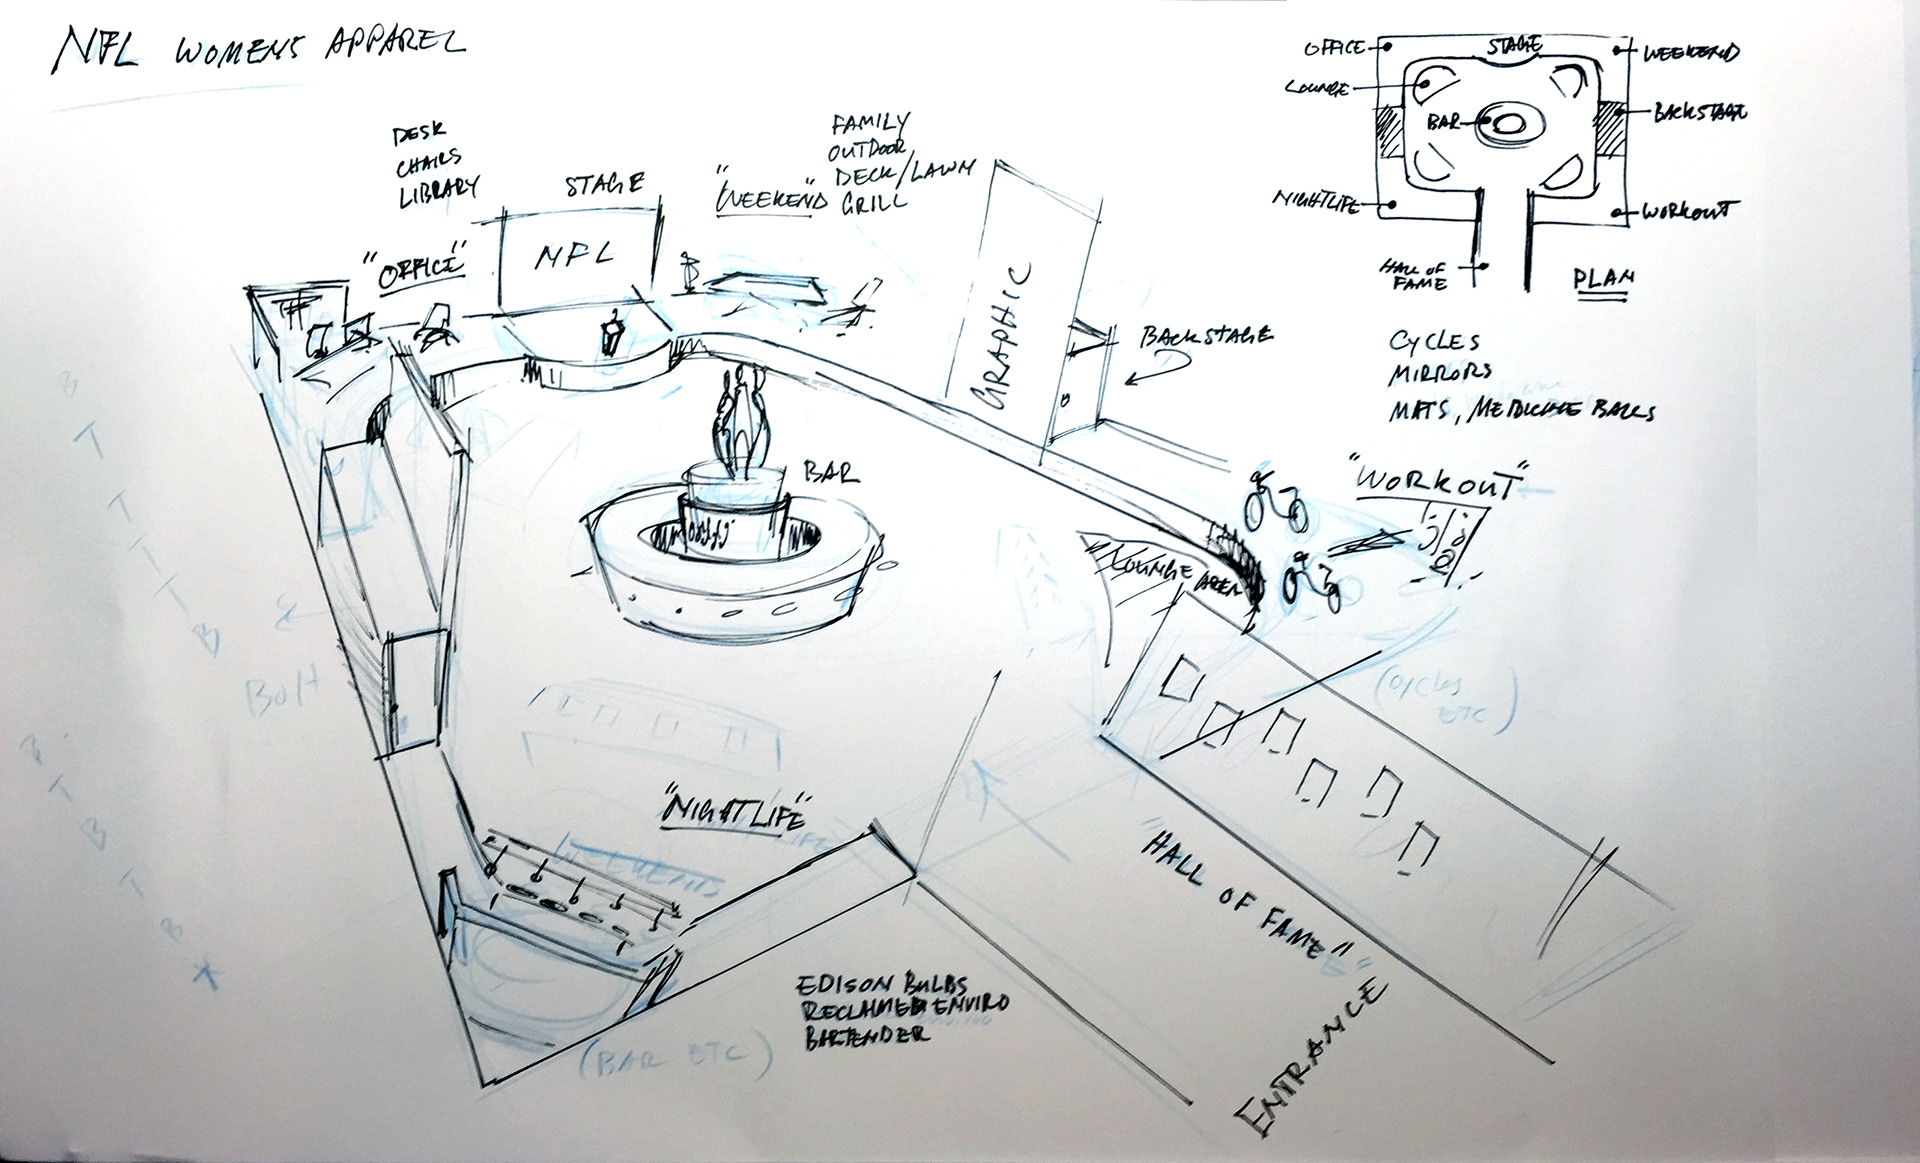 NFL WOMENS APPAREL
DESK
CHAIRS
LIBRARY
STAGE
"WEEKEND"
FAMILY
OUTDOOR
DECK/LAWN
GRILL
"OFFICE"
NFL
GRAPHIC
BACKSTAGE
OFFICE
STAGE
WEEKEND
LOUNGE
BAR
BACKSTAGE
NIGHTLIFE
WORKOUT
HALL OF
FAME
PLAN
CYCLES
MIRRORS
MATS, MEDICINE BALLS
"WORKOUT"
BAR
LOUNGE AREA
Bolt
(CYCLES
ETC)
"NIGHTLIFE"
"HALL OF FAME"
EDISON BULBS
RECLAIMED ENVIRO
BARTENDER
(BAR ETC)
ENTRANCE